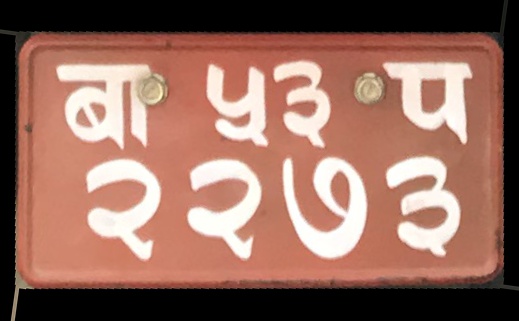 बा ५३ प
२२७३